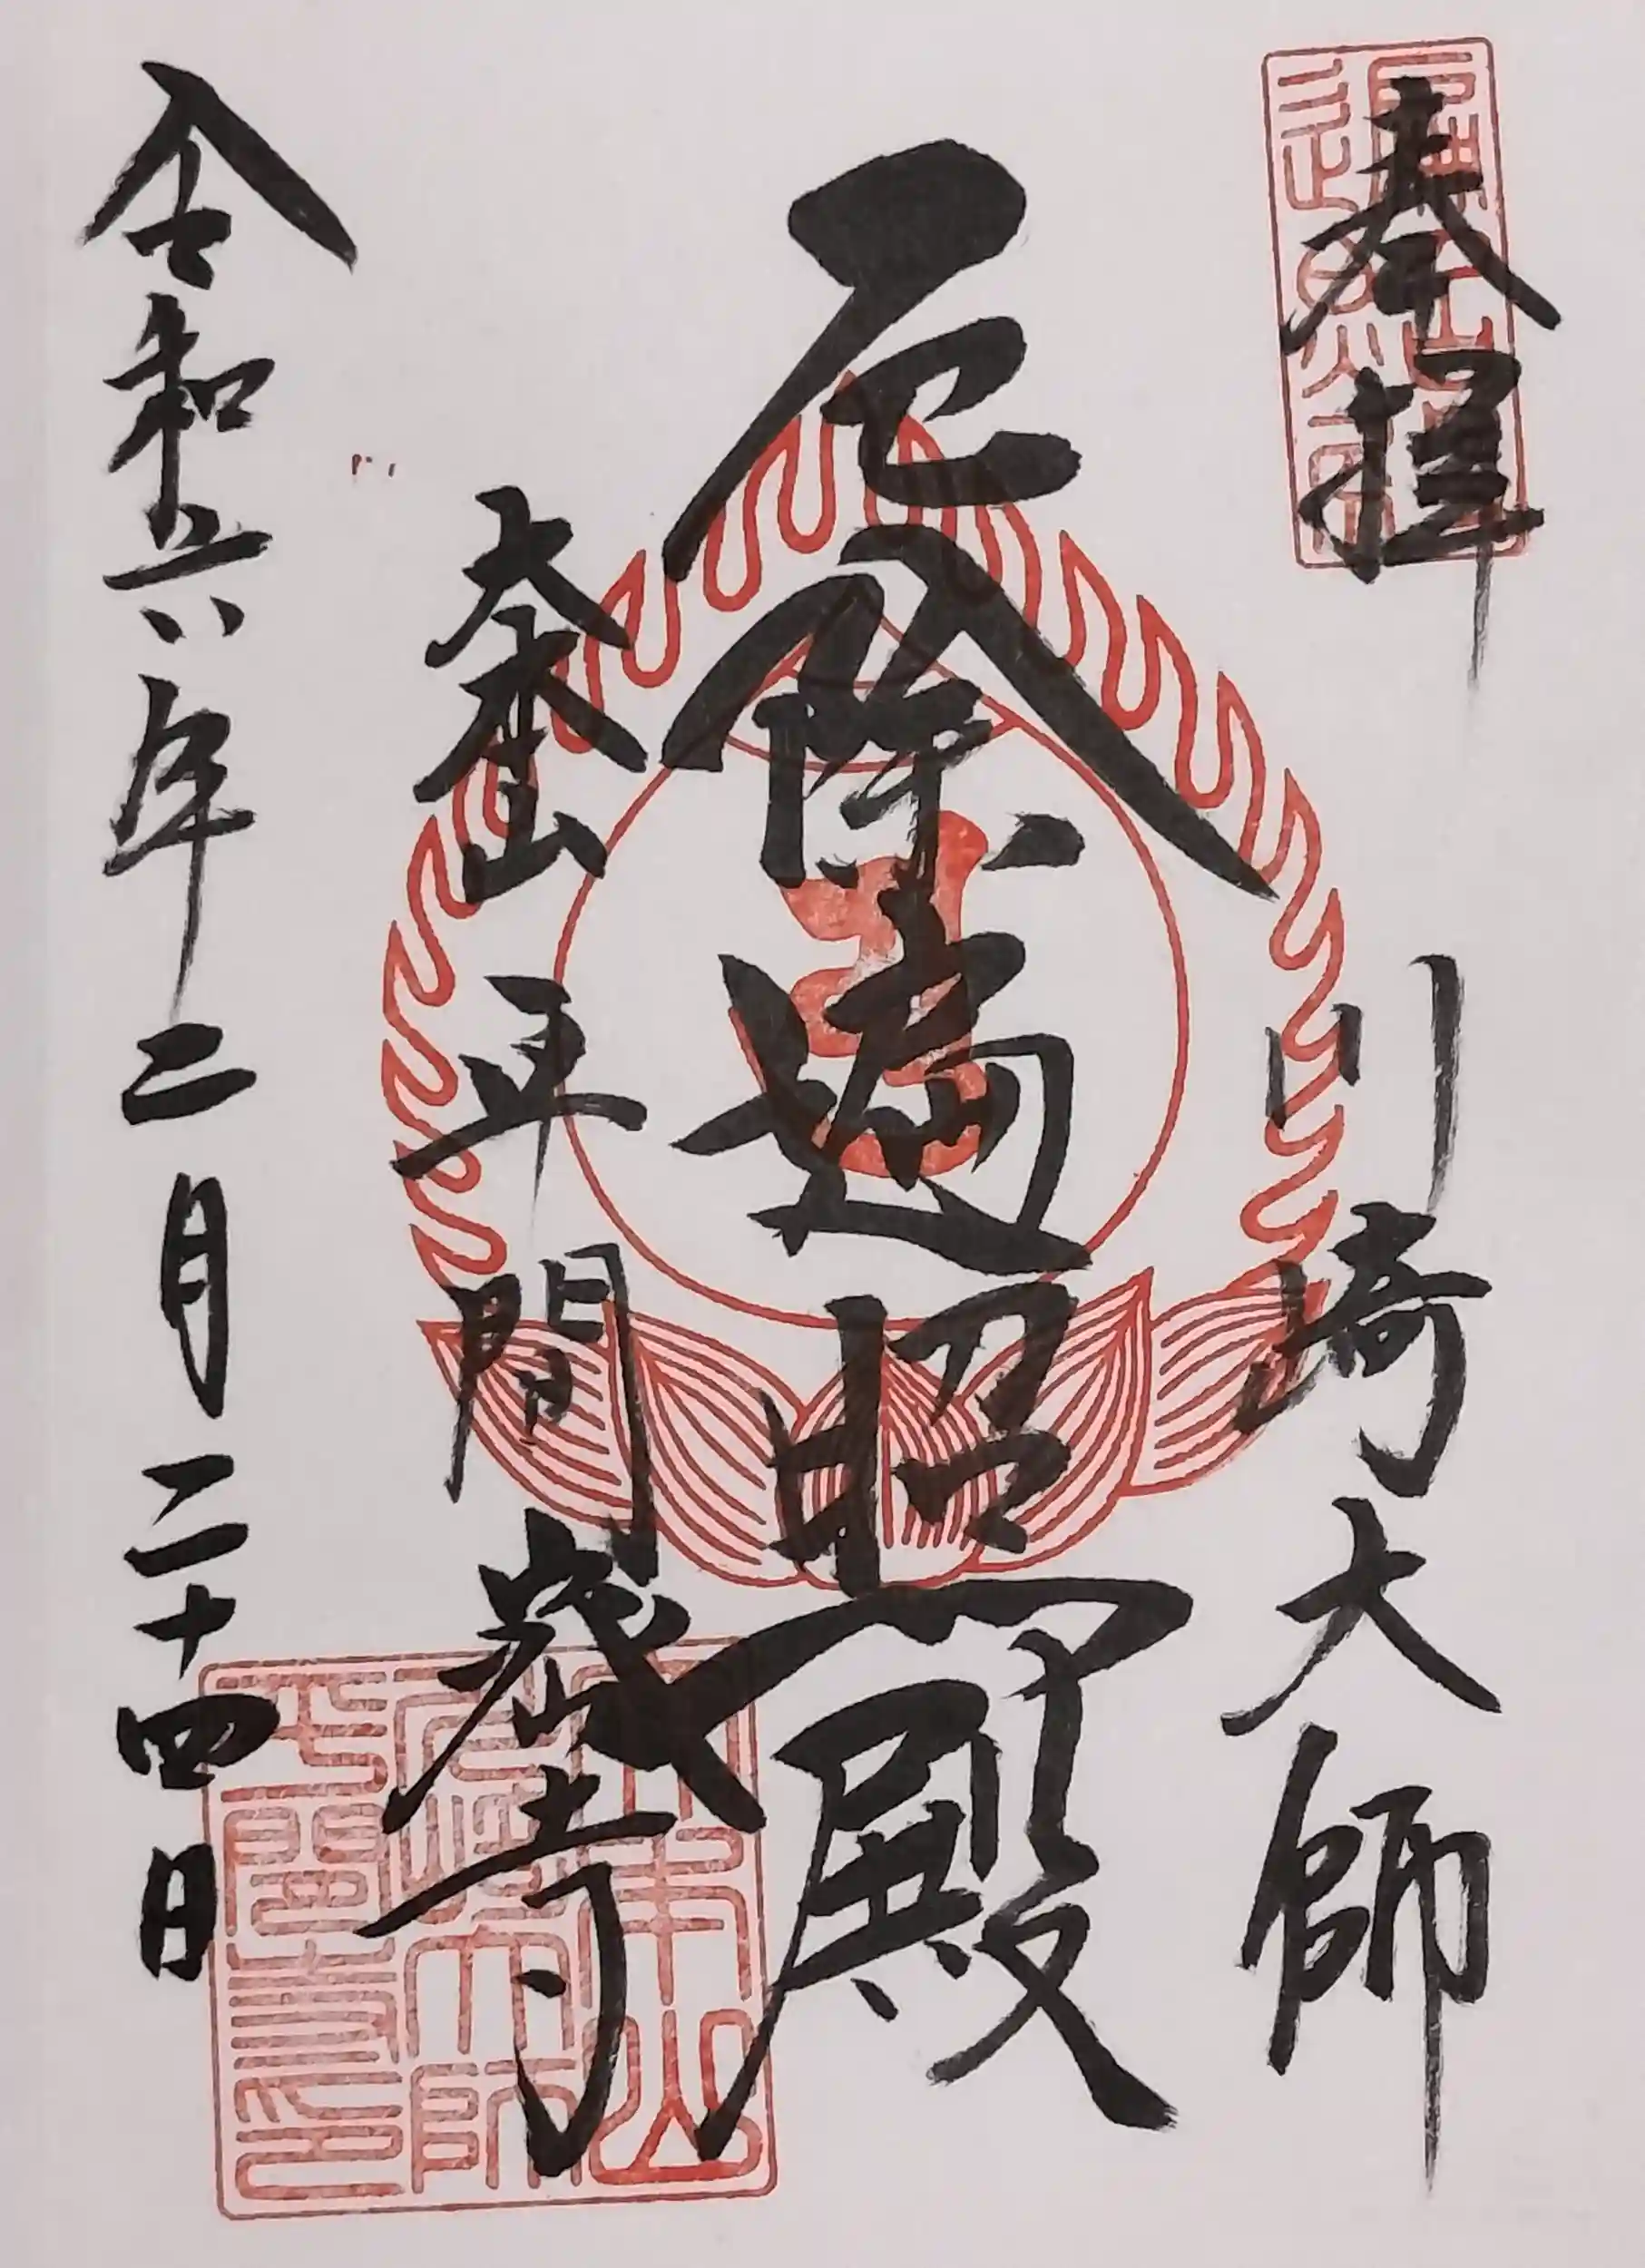 奉拝
川崎大師
厄除遍照殿
大本山平間寺
令和六年二月二十四日